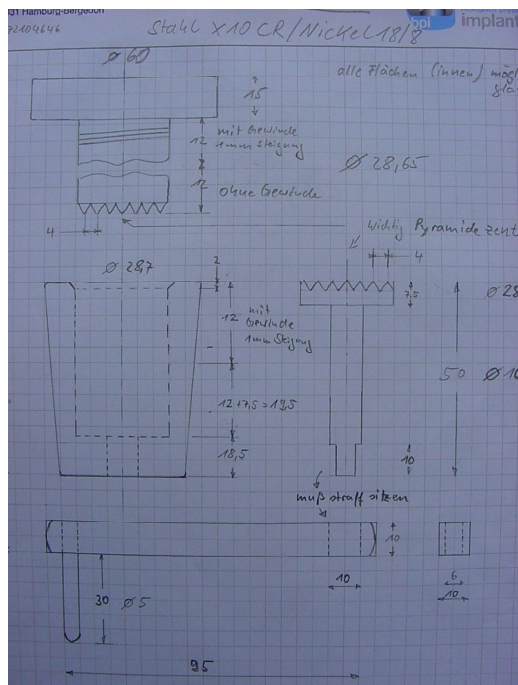 31 Hamburg-Bergedorf
72104646
bpi implant
Stahl X10 CR/Nickel 18/8
Ø 60
alle Flächen (innen)
15
12
mit Gewinde
1mm Steigung
Ø 28,65
12
ohne Gewinde
4
Wichtig Pyramide
4
Ø 28,7
2
7,5
Ø 28
12
mit
Gewinde
1mm Steigung
50
Ø 10
12+7,5=19,5
18,5
10
muß straff sitzen
10
10
6
10
30
Ø 5
95